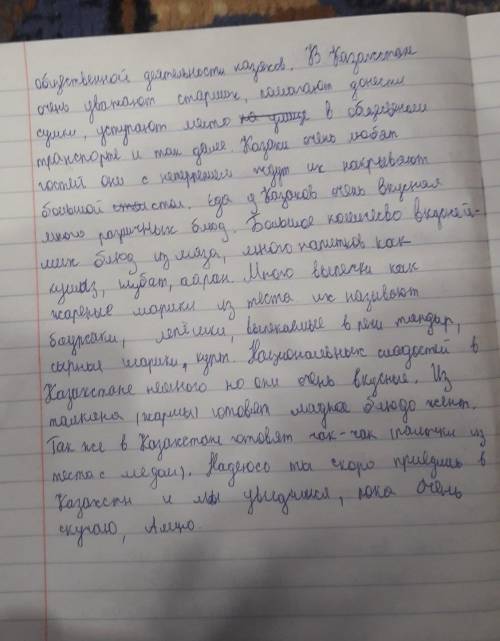 общественной деятельности казахов. В Казахстан
очень уважают старших, помогают донести
сумки, уступают место на улице в общественном
транспорте и так далее Казахи очень любят
гостей они с нетерпением ждут их накрывают
большой стол. Еда у Казахов очень вкусная
много различных блюд. Большое количево вкусней-
ших блюд из мяса, много напитков как
кумыз, шубат, айран. Много выпечки как
жареные шарики из теста их называют
баурсаки, лепёшки, выпекаемые в печи тандыр,
сырный шарики, курт. Национальных сладостей в
Казахстане немного но они очень вкусные. Из
талкана (жармы) готовят сладкое блюдо жент.
Так же в Казахстане готовят чак-чак (палочки из
теста с медом). Надеюсь ты скоро приедешь в
Казахстн и мы увидимся, пока очень
скучаю,